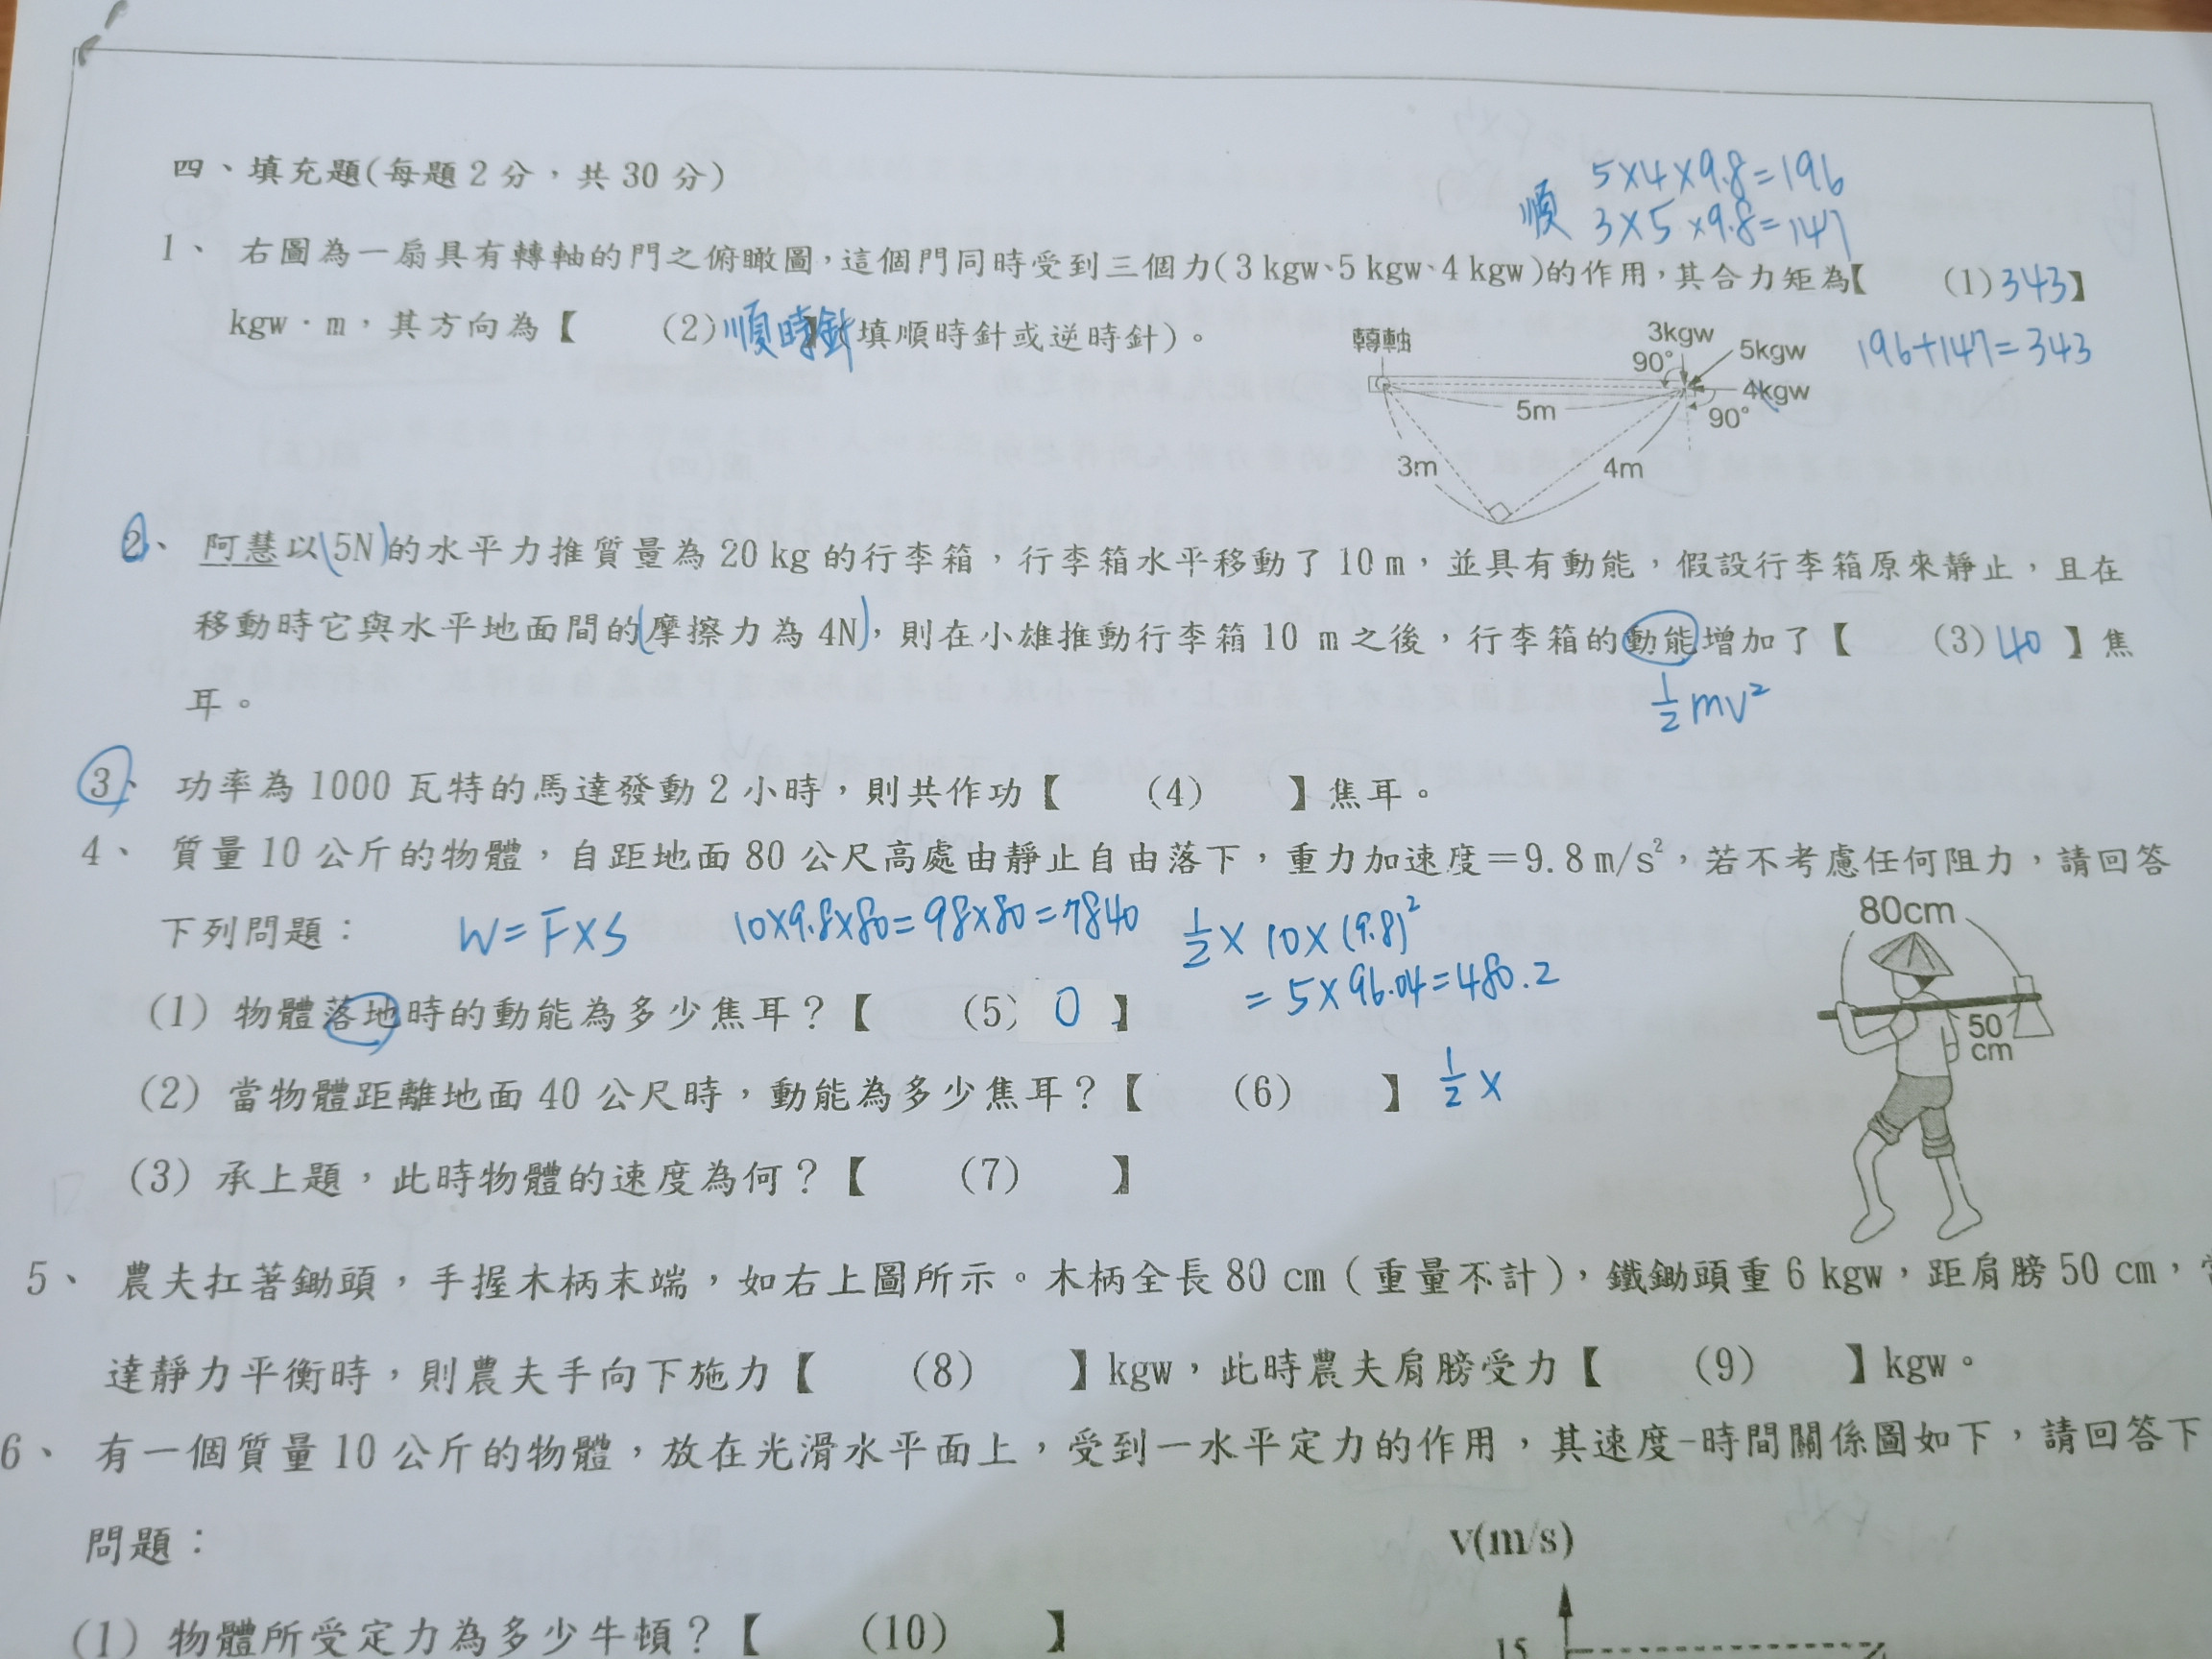 四、填充題(每題2分，共30分)
順 5×4×9.8=196
3×5×9.8=147
1、 右圖為一扇具有轉軸的門之俯瞰圖，這個門同時受到三個力(3 kgw、5 kgw、4 kgw)的作用，其合力矩為【 (1)343】
kgw·m，其方向為【 (2)順時針】(填順時針或逆時針)。
196+147=343
轉軸
3kgw
90°
5kgw
4kgw
90°
5m
3m
4m
2、 阿慧以(5N)的水平力推質量為20 kg的行李箱，行李箱水平移動了10 m，並具有動能，假設行李箱原來靜止，且在
移動時它與水平地面間的(摩擦力為4N)，則在小雄推動行李箱10 m之後，行李箱的動能增加了【 (3)40 】焦
耳。
1/2 mv²
3、 功率為1000瓦特的馬達發動2小時，則共作功【 (4) 】焦耳。
4、 質量10公斤的物體，自距地面80公尺高處由靜止自由落下，重力加速度＝9.8 m/s²，若不考慮任何阻力，請回答
下列問題：
W=F×S
10×9.8×80=98×80=7840
1/2×10×(9.8)²
=5×96.04=480.2
(1) 物體落地時的動能為多少焦耳？【 (5) 0 】
(2) 當物體距離地面40公尺時，動能為多少焦耳？【 (6) 】
1/2×
(3) 承上題，此時物體的速度為何？【 (7) 】
80cm
50
cm
5、 農夫扛著鋤頭，手握木柄末端，如右上圖所示。木柄全長80 cm（重量不計），鐵鋤頭重6 kgw，距肩膀50 cm，
達靜力平衡時，則農夫手向下施力【 (8) 】kgw，此時農夫肩膀受力【 (9) 】kgw。
6、 有一個質量10公斤的物體，放在光滑水平面上，受到一水平定力的作用，其速度-時間關係圖如下，請回答下
問題：
(1) 物體所受定力為多少牛頓？【 (10) 】
V(m/s)
15